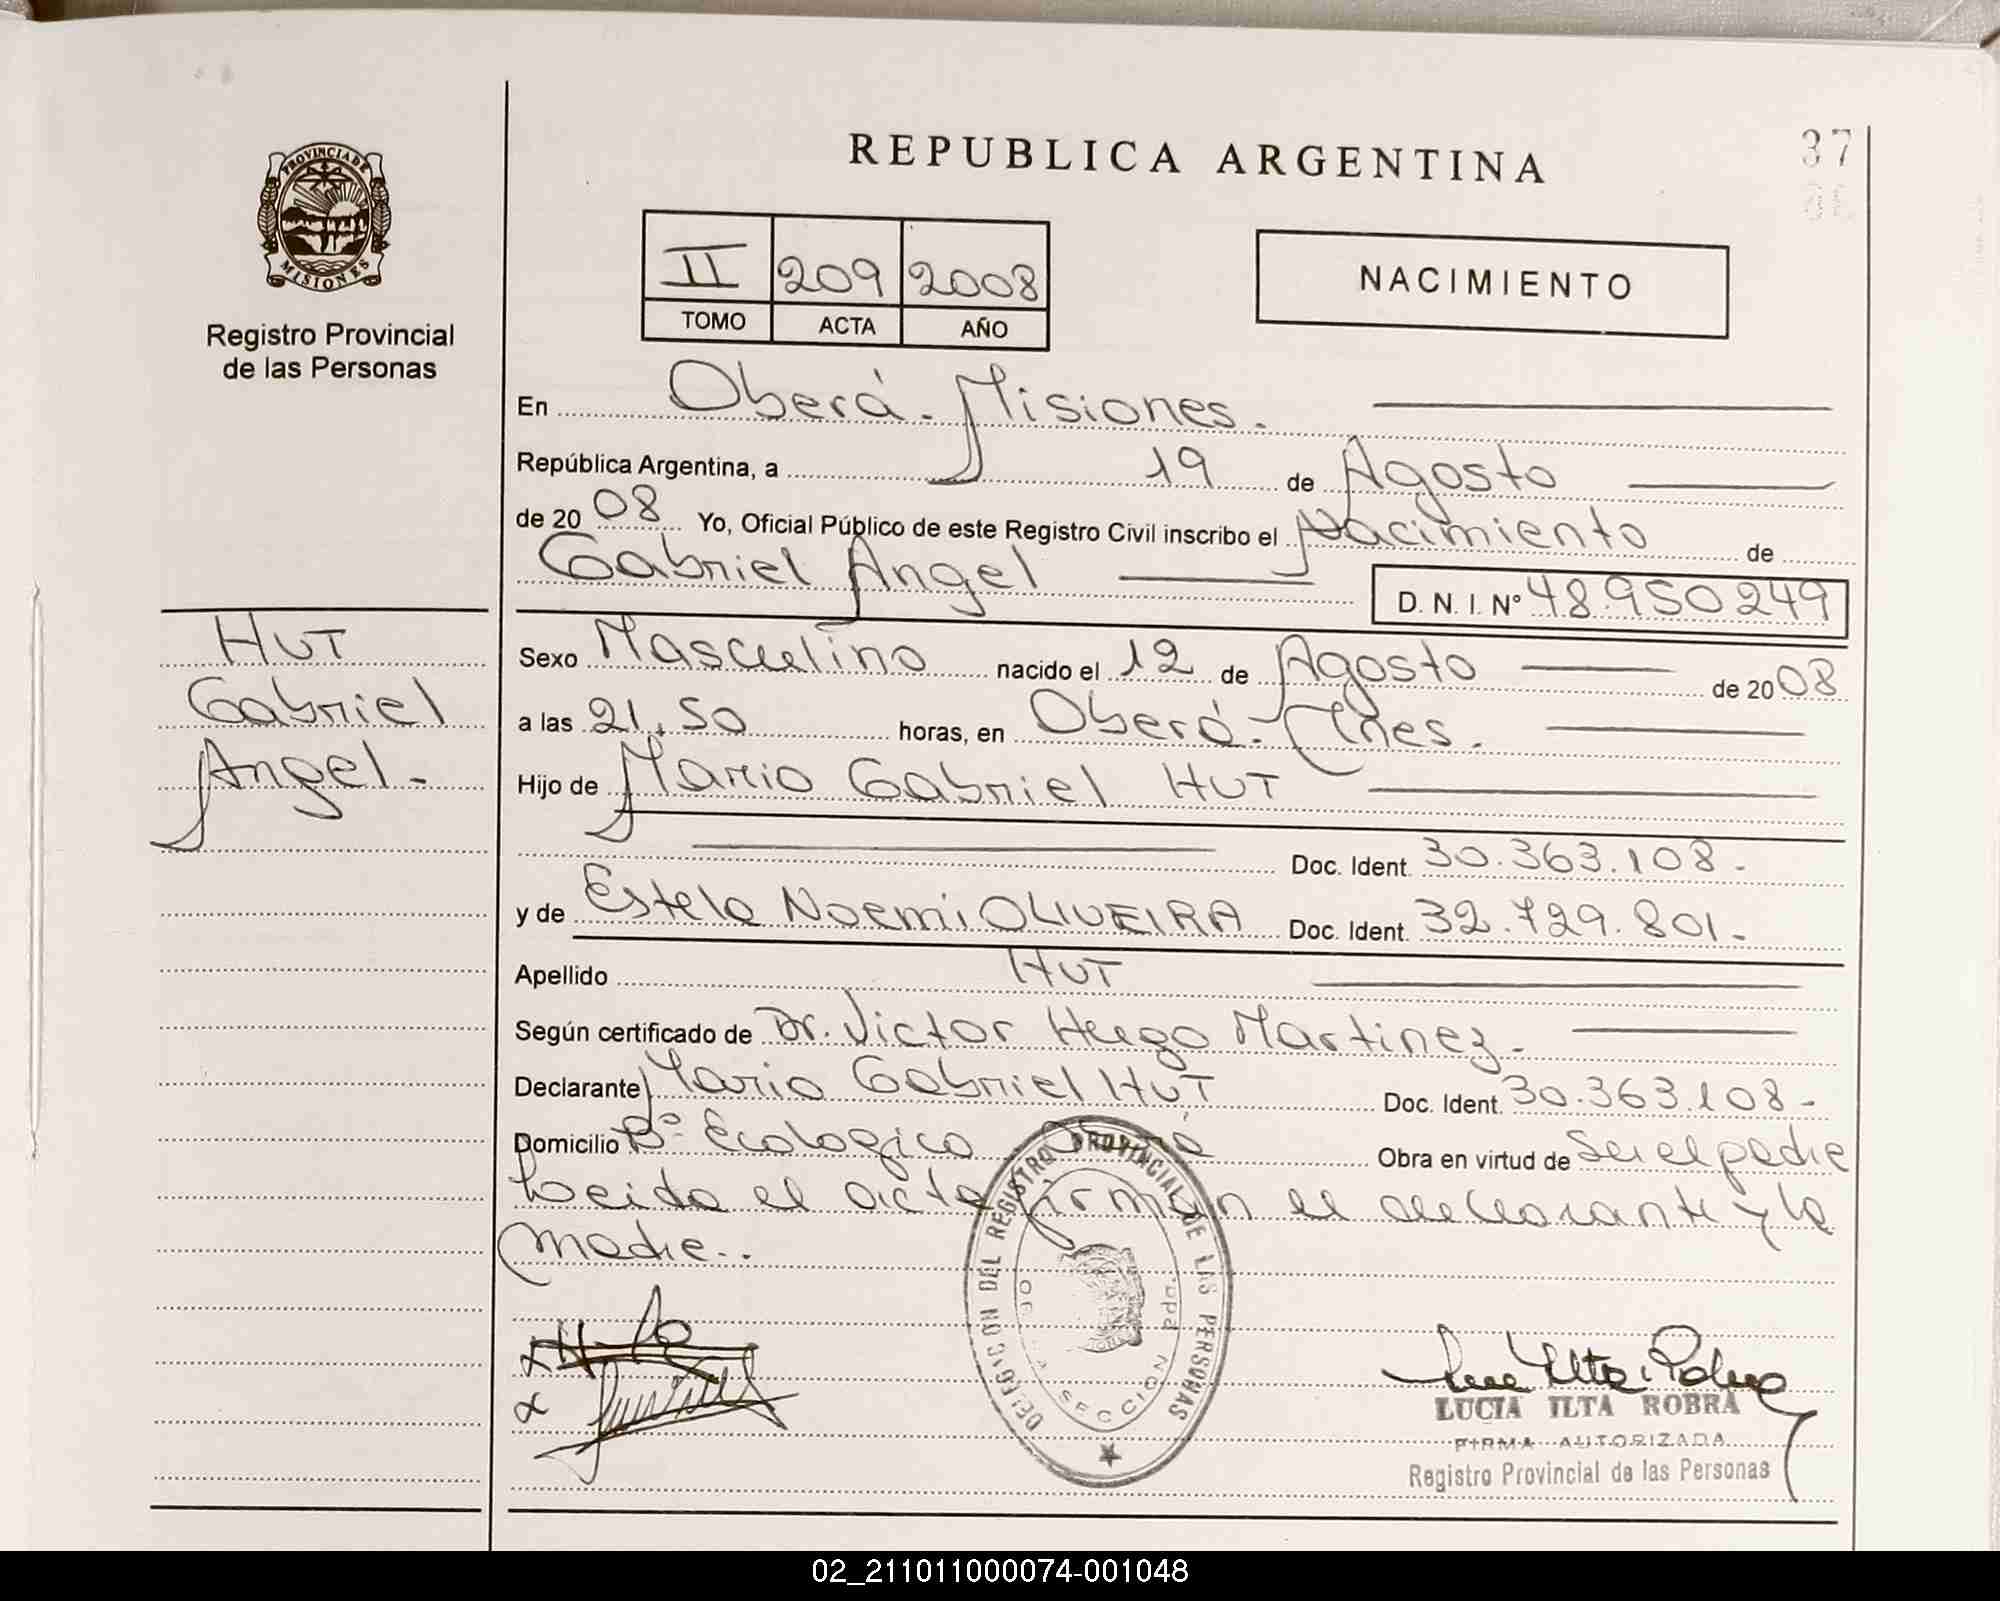 REPUBLICA ARGENTINA
37
PROVINCIA DE
MISIONES
Registro Provincial
de las Personas
II 209 2008
TOMO ACTA AÑO
NACIMIENTO
En Oberá - Misiones.
República Argentina, a 19 de Agosto
de 2008 Yo, Oficial Público de este Registro Civil inscribo el Nacimiento de
Gabriel Angel D. N. I. Nº 48.950249
HUT
Gabriel
Angel.-
Sexo Masculino nacido el 12 de Agosto de 2008
a las 21,50 horas, en Oberá - Mnes.
Hijo de Mario Gabriel HUT
Doc. Ident. 30.363.108-
y de Estela Noemi OLIVEIRA Doc. Ident. 32.729.801-
Apellido HUT
Según certificado de Dr. Victor Hugo Martinez.-
Declarante Mario Gabriel HUT Doc. Ident. 30.363.108-
Domicilio Bº Ecologico Oberá Obra en virtud de Ser el padre
Leida el acta firman el declarante y la
madre..
DELEGACION DEL REGISTRO PROVINCIAL DE LAS PERSONAS
SECCION
LUCIA ILTA ROBRA
FIRMA AUTORIZADA
Registro Provincial de las Personas
02_211011000074-001048